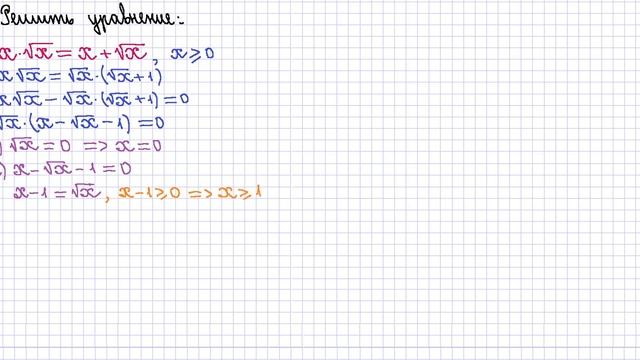 Решить уравнение:
x·√x = x + √x, x ≥ 0
x√x = √x·(√x + 1)
x√x − √x·(√x + 1) = 0
√x·(x − √x − 1) = 0
) √x = 0 => x = 0
) x − √x − 1 = 0
x − 1 = √x, x − 1 ≥ 0 => x ≥ 1